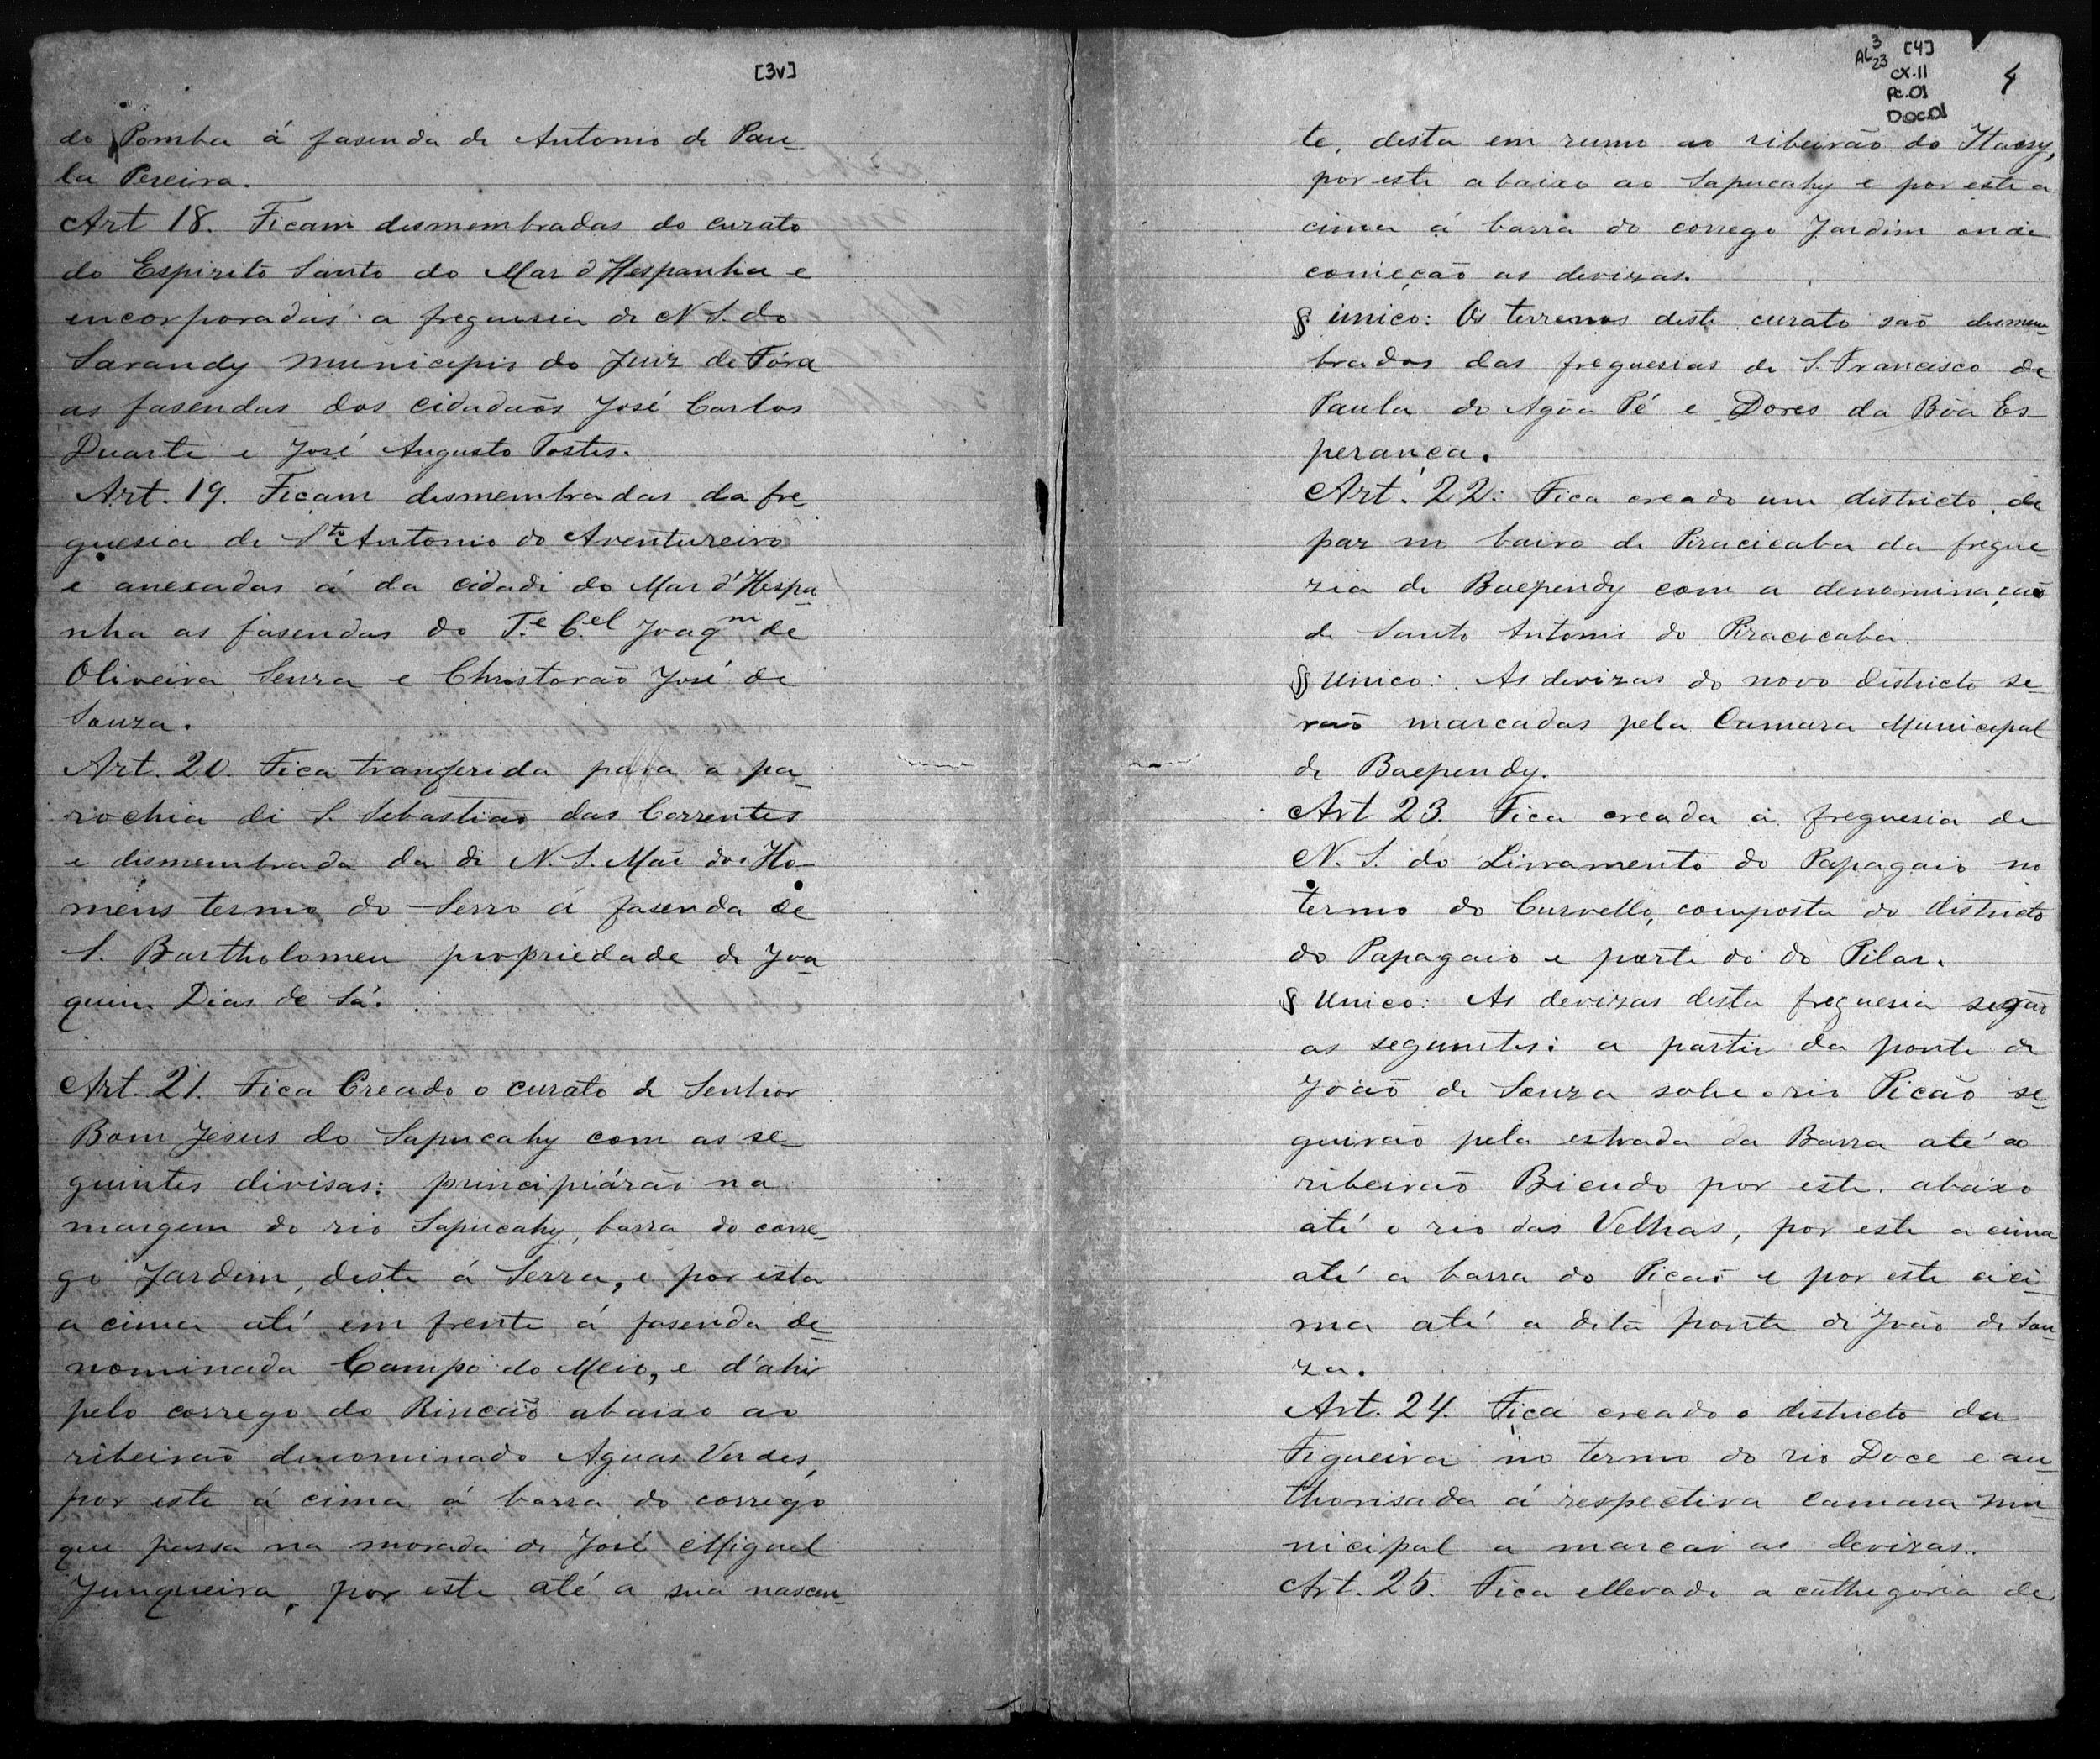 [3v]
do Pomba á fasenda de Antonio de Pau-
la Pereira.
Art 18. Ficam desmembradas do curato
do Espirito Santo do Mar d'Hespanha e
encorporadas a freguesia de N S. do
Sarandy municipio do Juiz de Fóra
as fasendas dos cidadaõs José Carlos
Duarte e José Augusto Tostes.
Art. 19. Ficam desmembradas da fre-
guesia de Sto Antonio do Aventureiro
e anexadas á da cidade do Mar d'Hespa-
nha as fasendas do Te. Cel. Joaqm de
Oliveira Senra e Christovaõ José de
Souza.
Art. 20. Fica tranferida para a pa-
rochia de S. Sebastiaõ das Correntes
e desmembrada da de N. S. Mãe dos Ho-
mens termo do Serro á fasenda de
S. Bartholomeu propriedade de Joa
quim Dias de Sá.
Art. 21. Fica Creado o curato de Senhor
Bom Jesus do Sapucahy com as se-
guintes divisas: principiárão na
margem do rio Sapucahy, barra do corre-
go Jardim, deste á Serra, e por esta
a cima até em frente á fasenda de-
nominada Campo do Meio, e d'ahir
pelo corrego do Rincaõ abaixo ao
ribeiraõ denominado Aguas Verdes,
por este á cima á barra do corrego
que passa na morada de José Miguel
Junqueira, por este até a sua nascen-
AL 3 23
[4]
cx.11
Pc.01
Doc.01
4
te, desta em rumo ao ribeirão do Itassy,
por este abaixo ao Sapucahy e por este a
cima á barra do corrego Jardim onde
começaõ as devizas.
§ unico: Os terrenos deste curato saõ desmem-
brados das freguesias de S. Francisco de
Paula do Agôa Pé e Dores da Bôa Es-
perança.
Art. 22: Fica creado um districto de
paz no bairo de Piracicaba da fregue-
zia de Baependy com a denominaçaõ
de Santo Antonio do Piracicaba.
§ Unico: As devizas do novo districto se-
raõ marcadas pela Camara Municipal
de Baependy.
Art 23. Fica creada a freguesia de
N. S. do Livramento do Papagaio no
termo do Curvello, composta do districto
do Papagaio e parte do do Pilar.
§ Unico: As devizas desta freguesia serão
as segunites: a partir da ponte de
João de Souza sobre o rio Picaõ se-
guirão pela estrada da Barra até ao
ribeiraõ Bicudo por este abaixo
até o rio das Velhas, por este a cima
até a barra do Picaõ e por este aci-
ma até a dita ponte de João de Sou-
za.
Art. 24. Fica creado o districto da
Figueira no termo do rio Doce e au-
thorisada á respectiva camara mu-
nicipal a marcar as devizas.
Art. 25. Fica ellevada a cathegoria de